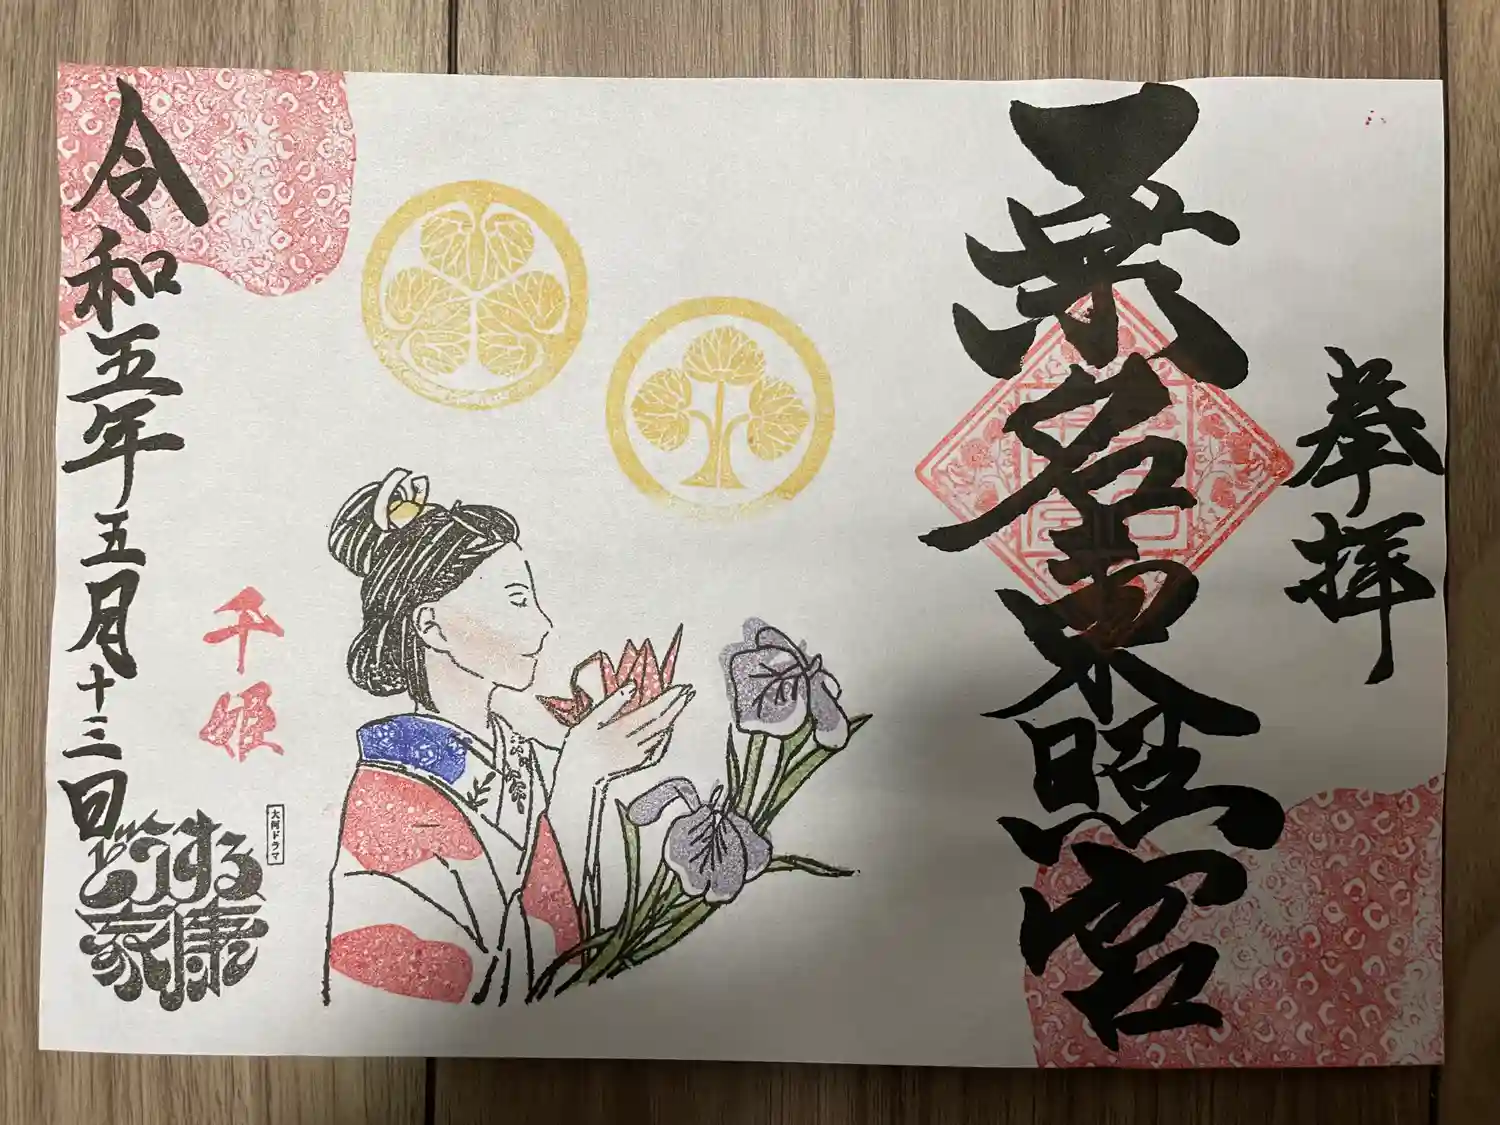 奉拝
桑名東照宮
千姫
大河ドラマ
どうする
家康
令和五年五月十三日